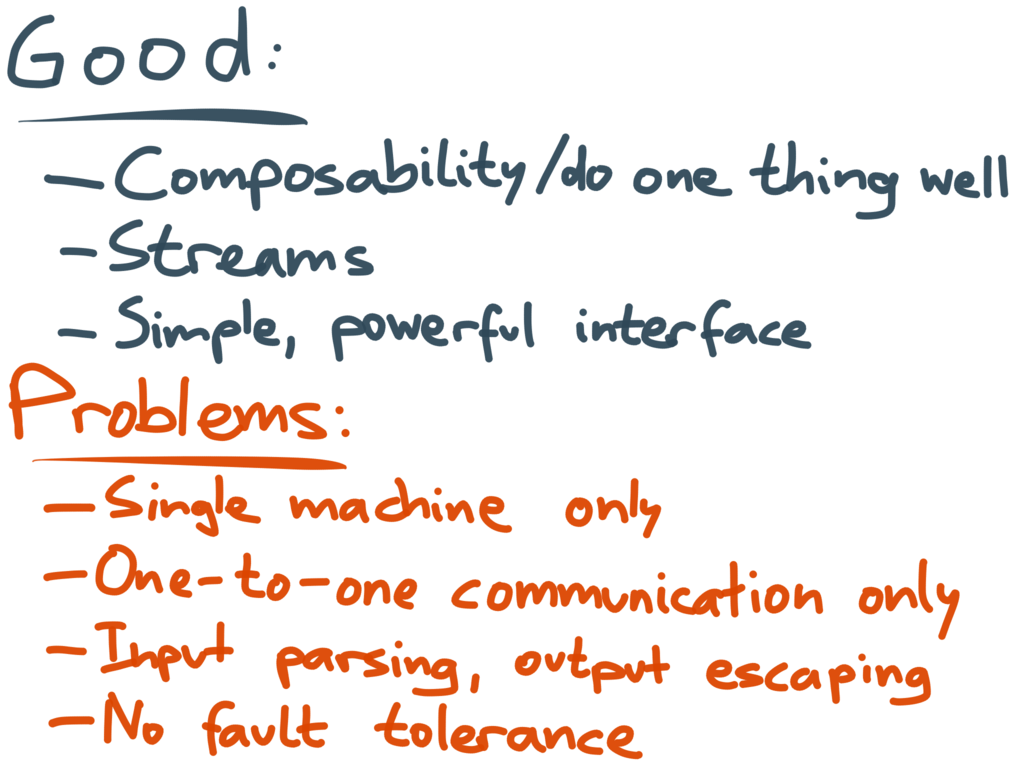 Good:
— Composability/do one thing well
- Streams
- Simple, powerful interface
Problems:
— Single machine only
- One-to-one communication only
- Input parsing, output escaping
- No fault tolerance